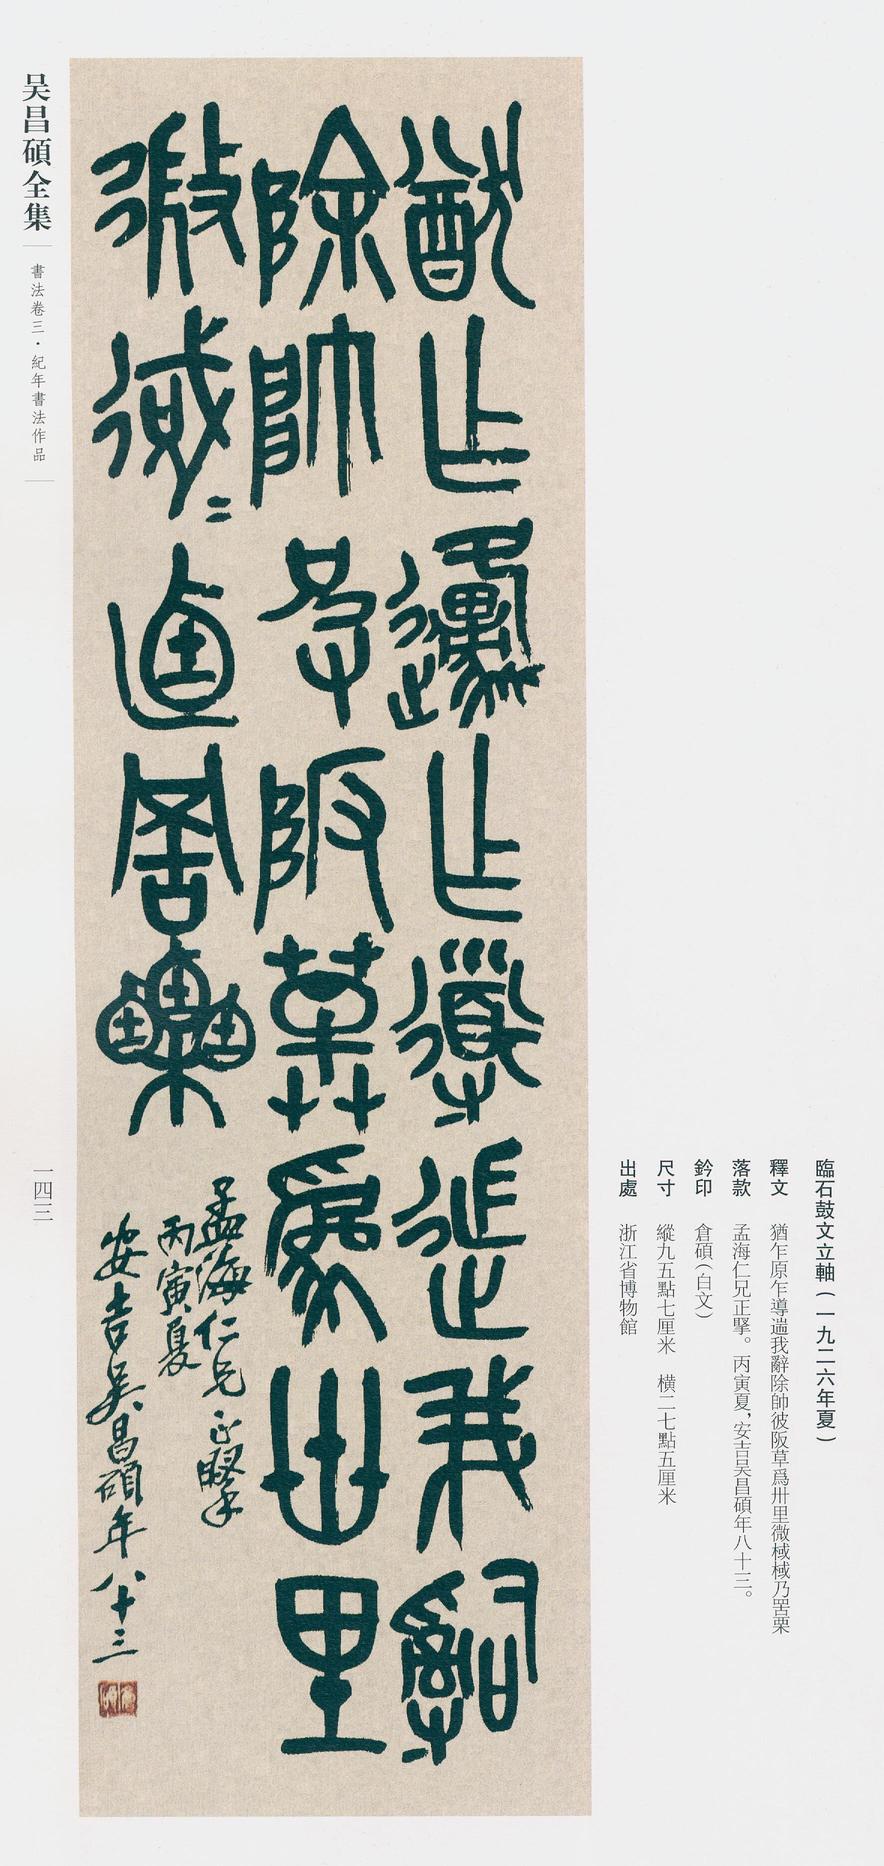 臨石鼓文立軸(一九二六年夏)
釋文 猶乍原乍導遄我辭除帥彼阪草爲卅里微棫棫乃罟栗
落款 孟海仁兄正掔。丙寅夏,安吉吴昌碩年八十三。
鈐印 倉碩(白文)
尺寸 縱九五點七厘米 橫二七點五厘米
出處 浙江省博物館
猷乍邍乍導遄我辭
除帥彼阪草爲卅里
微棫=廼罟栗
孟海仁兄正掔
丙寅夏
安吉吴昌碩年八十三
倉碩
吴昌碩全集
書法卷三·紀年書法作品
一四三